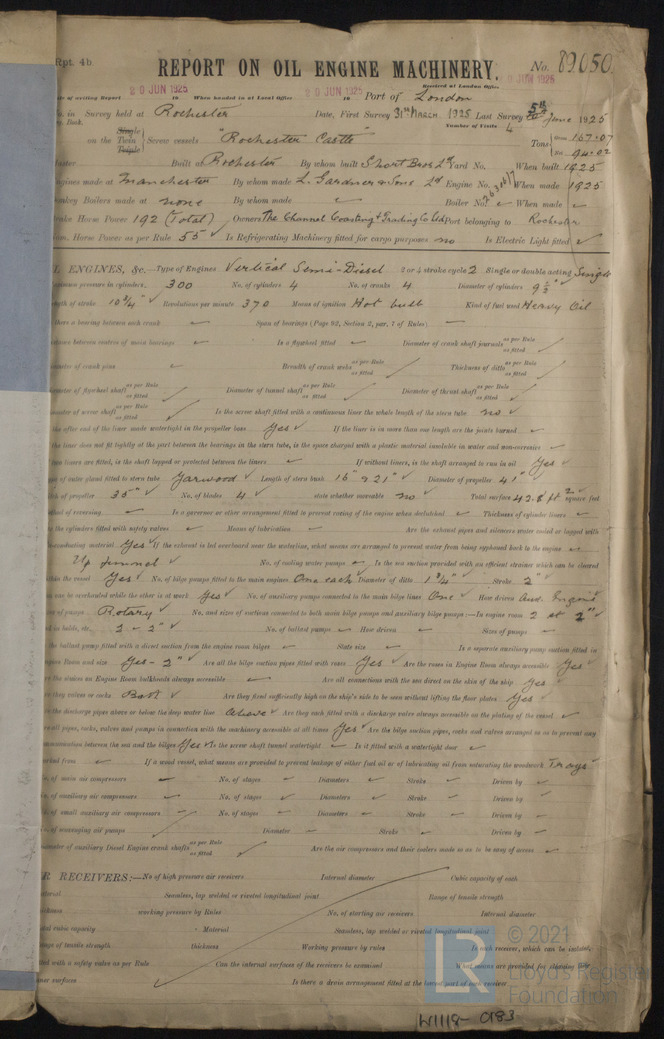 Rpt. 4b.
REPORT ON OIL ENGINE MACHINERY.
No. 89050.
20 JUN 1925 20 JUN 1925 JUN 1925
Received at London Office
of writing Report 19 When handed in at Local Office 19 Port of London
No. in Survey held at Rochester Date, First Survey 31st March 1925 Last Survey 5th June 1925
Book. Number of Visits 4
on the Single Twin Triple Screw vessels "Rochester Castle" Tons Gross 157.07 Net 94.02
Master Built at Rochester By whom built Short Bros Ld Yard No. When built 1925
Engines made at Manchester By whom made L. Gardner & Sons Ld Engine No. When made 1925
Donkey Boilers made at none By whom made Boiler No. When made
Brake Horse Power 192 (Total) Owners The Channel Coasting & Trading Co Ltd Port belonging to Rochester
Nom. Horse Power as per Rule 55 Is Refrigerating Machinery fitted for cargo purposes no Is Electric Light fitted
OIL ENGINES, &c.—Type of Engines Vertical Semi-Diesel 2 or 4 stroke cycle 2 Single or double acting Single
Maximum pressure in cylinders, 300 No. of cylinders 4 No. of cranks 4 Diameter of cylinders 9 1/2"
Length of stroke 10 3/4" Revolutions per minute 370 Means of ignition Hot bulb Kind of fuel used Heavy Oil
Is there a bearing between each crank Span of bearings (Page 92, Section 2, par. 7 of Rules)
Distance between centres of main bearings Is a flywheel fitted Diameter of crank shaft journals as per Rule as fitted
Diameter of crank pins Breadth of crank webs as per Rule as fitted Thickness of ditto as per Rule as fitted
Diameter of flywheel shaft as per Rule as fitted Diameter of tunnel shaft as per Rule as fitted Diameter of thrust shaft as per Rule as fitted
Diameter of screw shaft as per Rule as fitted Is the screw shaft fitted with a continuous liner the whole length of the stern tube no
Is the after end of the liner made watertight in the propeller boss Yes If the liner is in more than one length are the joints burned
If the liner does not fit tightly at the part between the bearings in the stern tube, is the space charged with a plastic material insoluble in water and non-corrosive
If two liners are fitted, is the shaft lapped or protected between the liners If without liners, is the shaft arranged to run in oil Yes
Type of outer gland fitted to stern tube Yarwood Length of stern bush 15 & 21" Diameter of propeller 41"
Pitch of propeller 35" No. of blades 4 state whether moveable no Total surface 42.8 ft 2 square feet
Method of reversing Is a governor or other arrangement fitted to prevent racing of the engine when declutched Thickness of cylinder liners
Are the cylinders fitted with safety valves Means of lubrication Are the exhaust pipes and silencers water cooled or lagged with
non-conducting material Yes If the exhaust is led overboard near the waterline, what means are arranged to prevent water from being syphoned back to the engine
Up funnel No. of cooling water pumps Is the sea suction provided with an efficient strainer which can be cleared
within the vessel Yes No. of bilge pumps fitted to the main engines One each Diameter of ditto 1 3/4" Stroke 2"
Can one be overhauled while the other is at work Yes No. of auxiliary pumps connected to the main bilge lines One How driven Aux. Engine
Sizes of pumps Rotary No. and sizes of suctions connected to both main bilge pumps and auxiliary bilge pumps:—In engine room 2 at 2"
and in holds, etc. 2 - 2" No. of ballast pumps How driven Sizes of pumps
Is the ballast pump fitted with a direct suction from the engine room bilges State size Is a separate auxiliary pump suction fitted in
Engine Room and size Yes - 2" Are all the bilge suction pipes fitted with roses Yes Are the roses in Engine Room always accessible Yes
Are the sluices on Engine Room bulkheads always accessible Are all connections with the sea direct on the skin of the ship Yes
Are they valves or cocks Both Are they fixed sufficiently high on the ship's side to be seen without lifting the floor plates Yes
Are the discharge pipes above or below the deep water line Above Are they each fitted with a discharge valve always accessible on the plating of the vessel
Are all pipes, cocks, valves and pumps in connection with the machinery accessible at all times Yes Are the bilge suction pipes, cocks and valves arranged so as to prevent any
communication between the sea and the bilges Yes Is the screw shaft tunnel watertight Is it fitted with a watertight door
worked from If a wood vessel, what means are provided to prevent leakage of either fuel oil or of lubricating oil from saturating the woodwork Trays
No. of main air compressors No. of stages Diameters Stroke Driven by
No. of auxiliary air compressors No. of stages Diameters Stroke Driven by
No. of small auxiliary air compressors No. of stages Diameters Stroke Driven by
No. of scavenging air pumps Diameter Stroke Driven by
Diameter of auxiliary Diesel Engine crank shafts as per Rule as fitted Are the air compressors and their coolers made so as to be easy of access
AIR RECEIVERS:—No of high pressure air receivers Internal diameter Cubic capacity of each
material Seamless, lap welded or riveted longitudinal joint Range of tensile strength
thickness working pressure by Rules No. of starting air receivers Internal diameter
Total cubic capacity Material Seamless, lap welded or riveted longitudinal joint
Range of tensile strength thickness Working pressure by rules Is each receiver, which can be isolated,
fitted with a safety valve as per Rule Can the internal surfaces of the receivers be examined What means are provided for cleaning their
inner surfaces Is there a drain arrangement fitted at the lowest part of each receiver
LR © 2021
Lloyd's Register
Foundation
W1118-0183